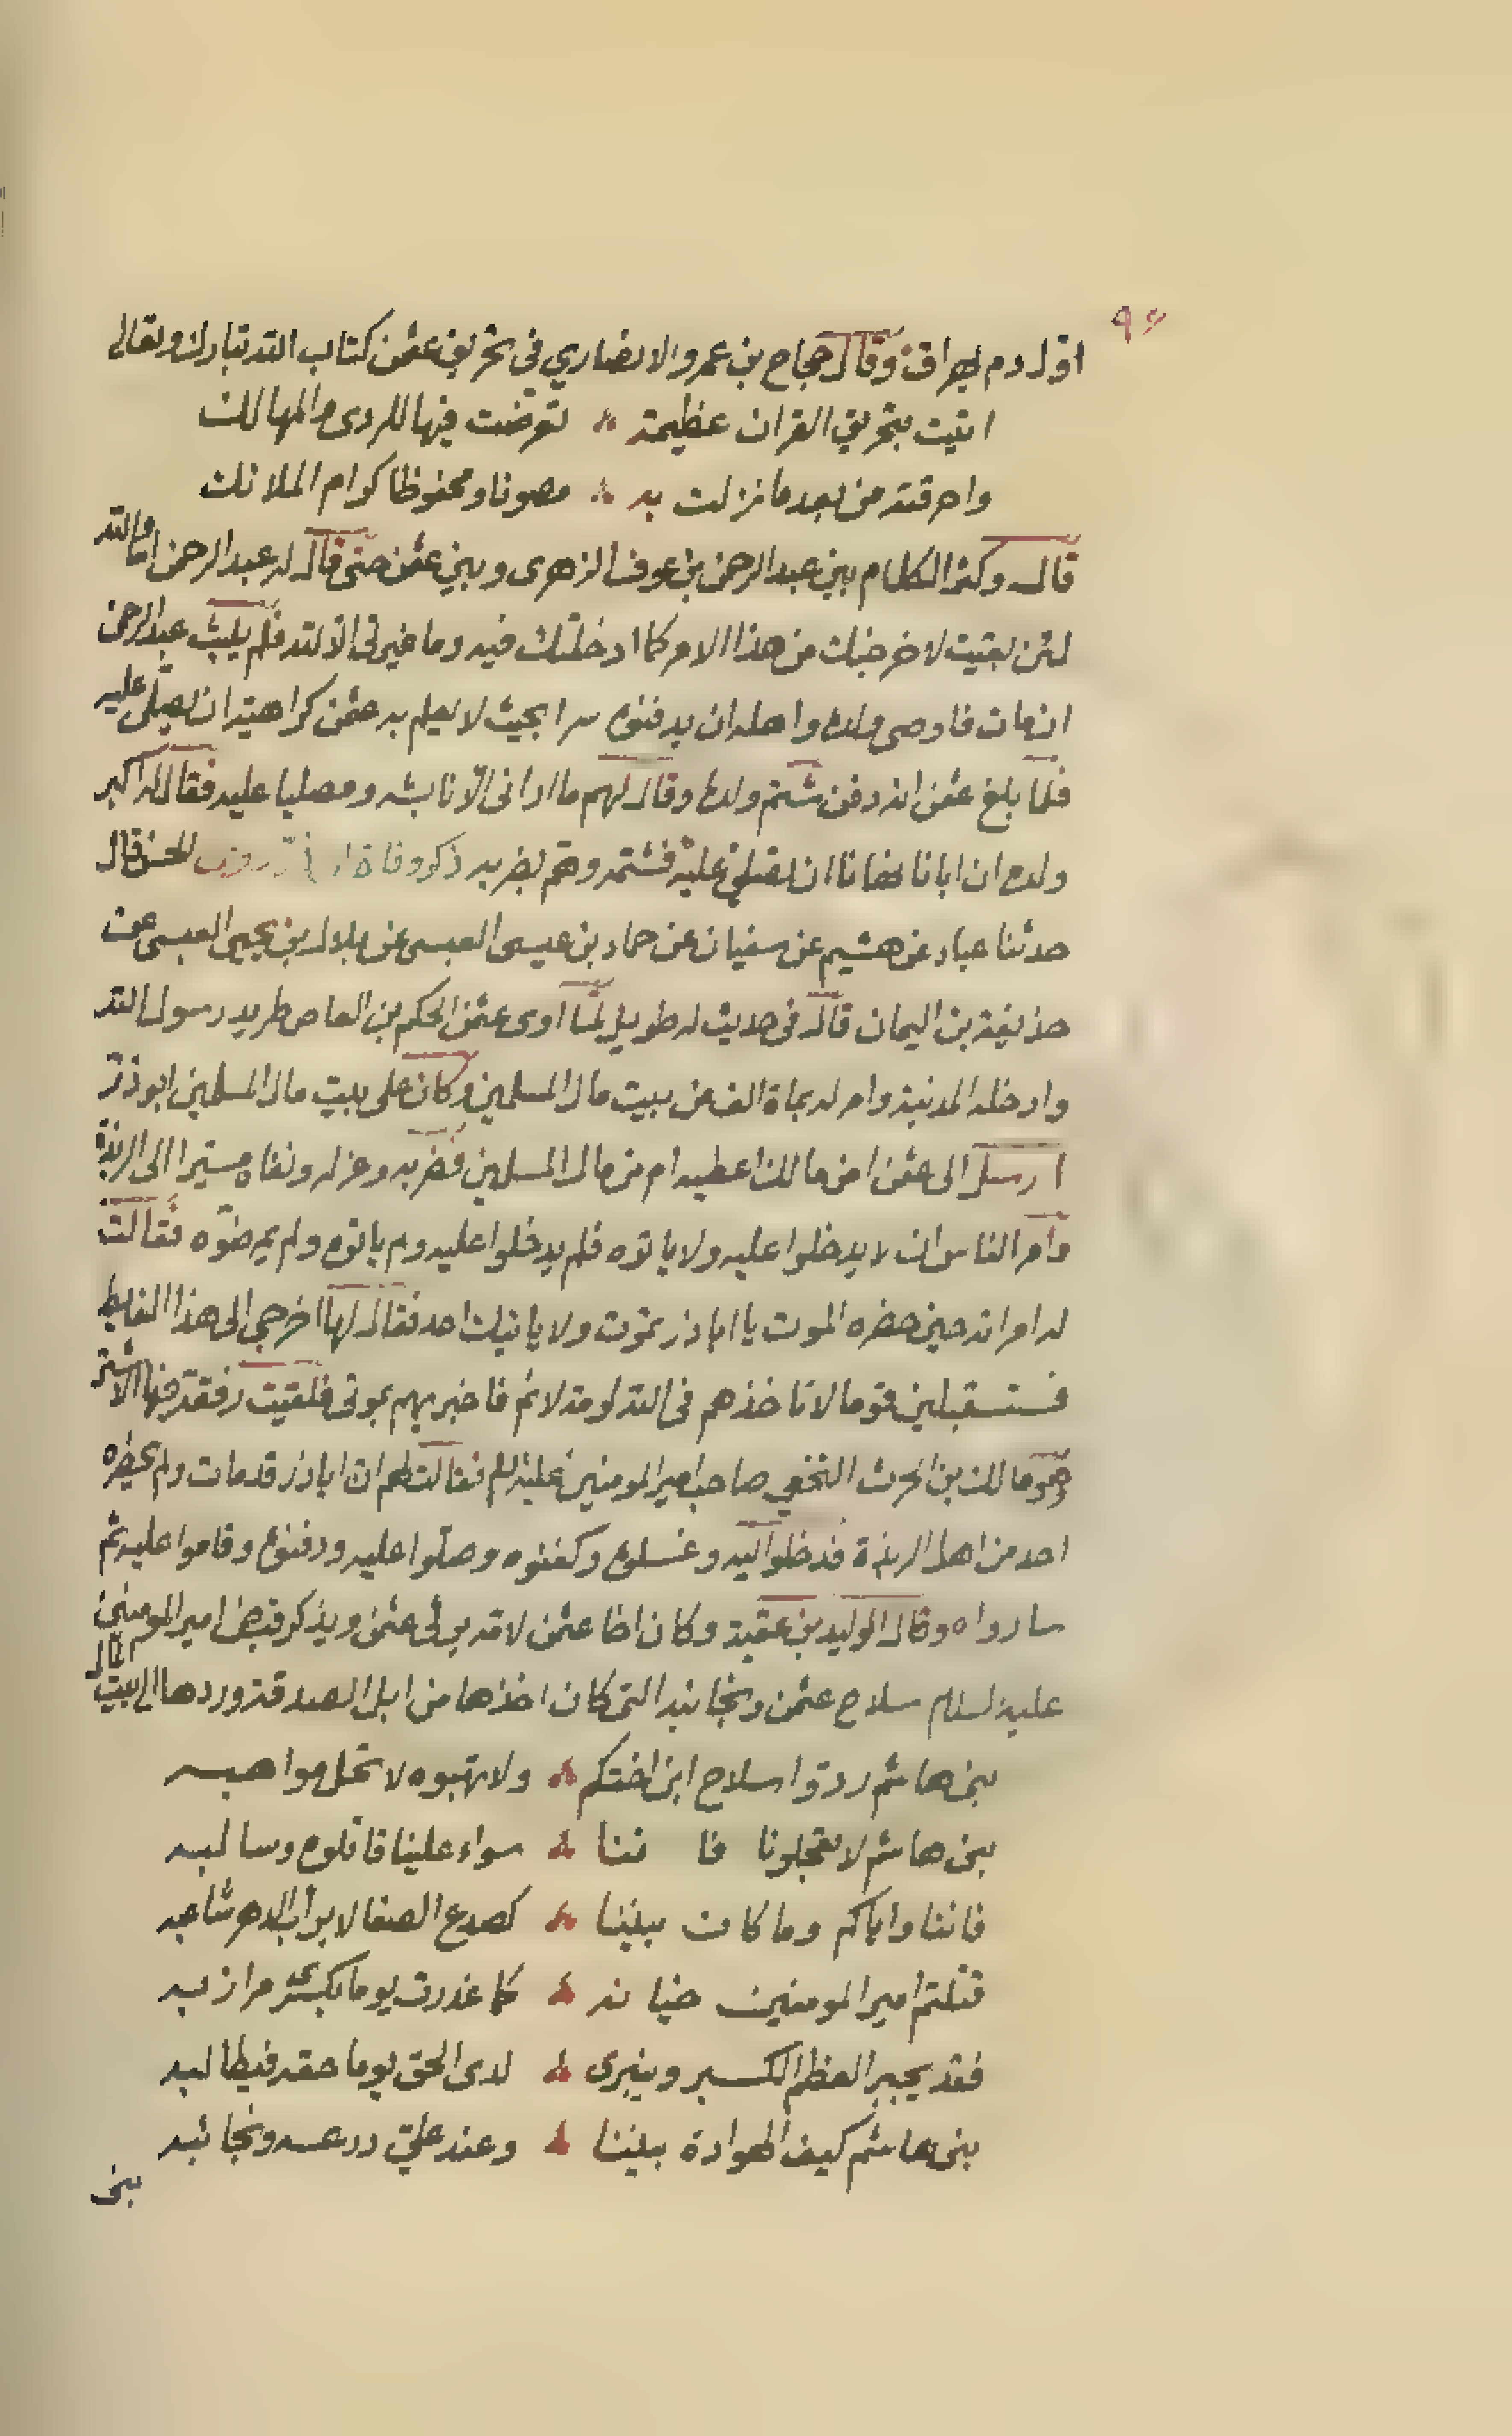 ٩٤
اول دم يهراق وقال حجاج بن عمرو الانصاري في تحريق عثمن كتاب الله تبارك وتعالى
اتيت بتحريق القران عظيمة تعرضت فيها للردى والمهالك
واحرقته من بعد ما نزلت به مصونا ومحفوظا كرام الملائك
قال وكثر الكلام بين عبد الرحمن بن عوف الزهرى وبين عثمن حتى قال له عبد الرحمن اما والله
لئن بقيت لاخرجنك من هذا الامر كما ادخلتك فيه وما غيرنى الا الله فلم يلبث عبد الرحمن
ان مات فاوصى ولده واهله ان يدفنوه سرا بحيث لا يعلم به عثمن كراهية ان يصلى عليه
فلما بلغ عثمن انه دفن شتم ولده وقال لهم ما ارانى الا نابشه ومصليا عليه فقال له اكبر
ولده ان ابانا نهانا ان تصلي عليه فشتمه وهم بضربه ذكر وفاة للحسن قال
حدثنا عباد عن هشيم عن سفيان عن حماد بن عيسى العبسى عن بلال بن يحيى العبسى عن
حذيفة بن اليمان قال فى حديث له طويل لما اوى عثمن الحكم بن العاص طريد رسول الله
وادخله المدينة وامر له بماة الف من بيت مال المسلمين وكان على بيت مال المسلمين ابو ذر
ارسل الى عثمن امن مالك اعطيه ام من مال المسلمين فضربه وعزله ونفاه مسيرا الى الربذة
وامر الناس ان لا يدخلوا عليه ولا ياتوه فلم يدخلوا عليه ولم ياتوه ولم يمرضوه فقالت
له امراته حين حضره الموت يا ابا ذر تموت ولا ياتيك احد فقال لها اخرجي الى هذا الغايط
فستستقبلين قوما لا تاخذهم فى الله لومة لائم فاخبريهم بموتى فلقيت رفقة فيها الاشتر
وهو مالك بن الحرث النخعي صاحب امير المومنين عليه السلم فقالت لهم ان ابا ذر قد مات ولم يحضره
احد من اهل الربذة فدخلوا اليه وغسلوه وكفنوه وصلوا عليه ودفنوه وقاموا عليه ثم
ساروا ه وقال الوليد بن عقبة وكان اخا عثمن لامه يرثى عثمن ويذكر قبض امير المومنين
عليه السلام سلاح عثمن ونجائبه التى كان اخذها من ابل الصدقة وردها الى بيت المال
بنى هاشم ردوا سلاح ابن اختكم ولا تهبوه لا تحل مواهبه
بنى هاشم لا تعجلونا فا ننا سواء علينا قاتلوه وسالبه
فاننا واياكم وما كان بيننا كصدع الصفا لا يراب الدهر شاعبه
قتلتم امير المومنين خيانه كما غدرت يوما بكسرى مرازبه
فقد يجبر العظم الكسير وينبرى لدى الحق يوما حقه فيطالبه
بنى هاشم كيف الهوادة بيننا وعند علي درعه ونجائبه
بنى